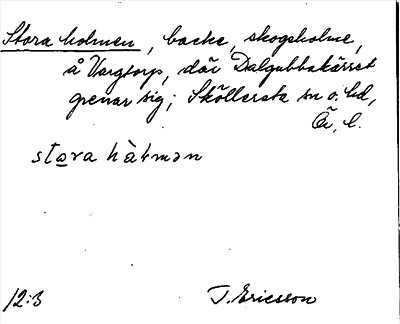 Stora holmen, backe, skogsholme,
å Vargtorp, där Dalgubbakärret
grenar sig; Sköllersta sn o. hd,
Ö. l.
stora håtmən
12:3 J. Ericsson